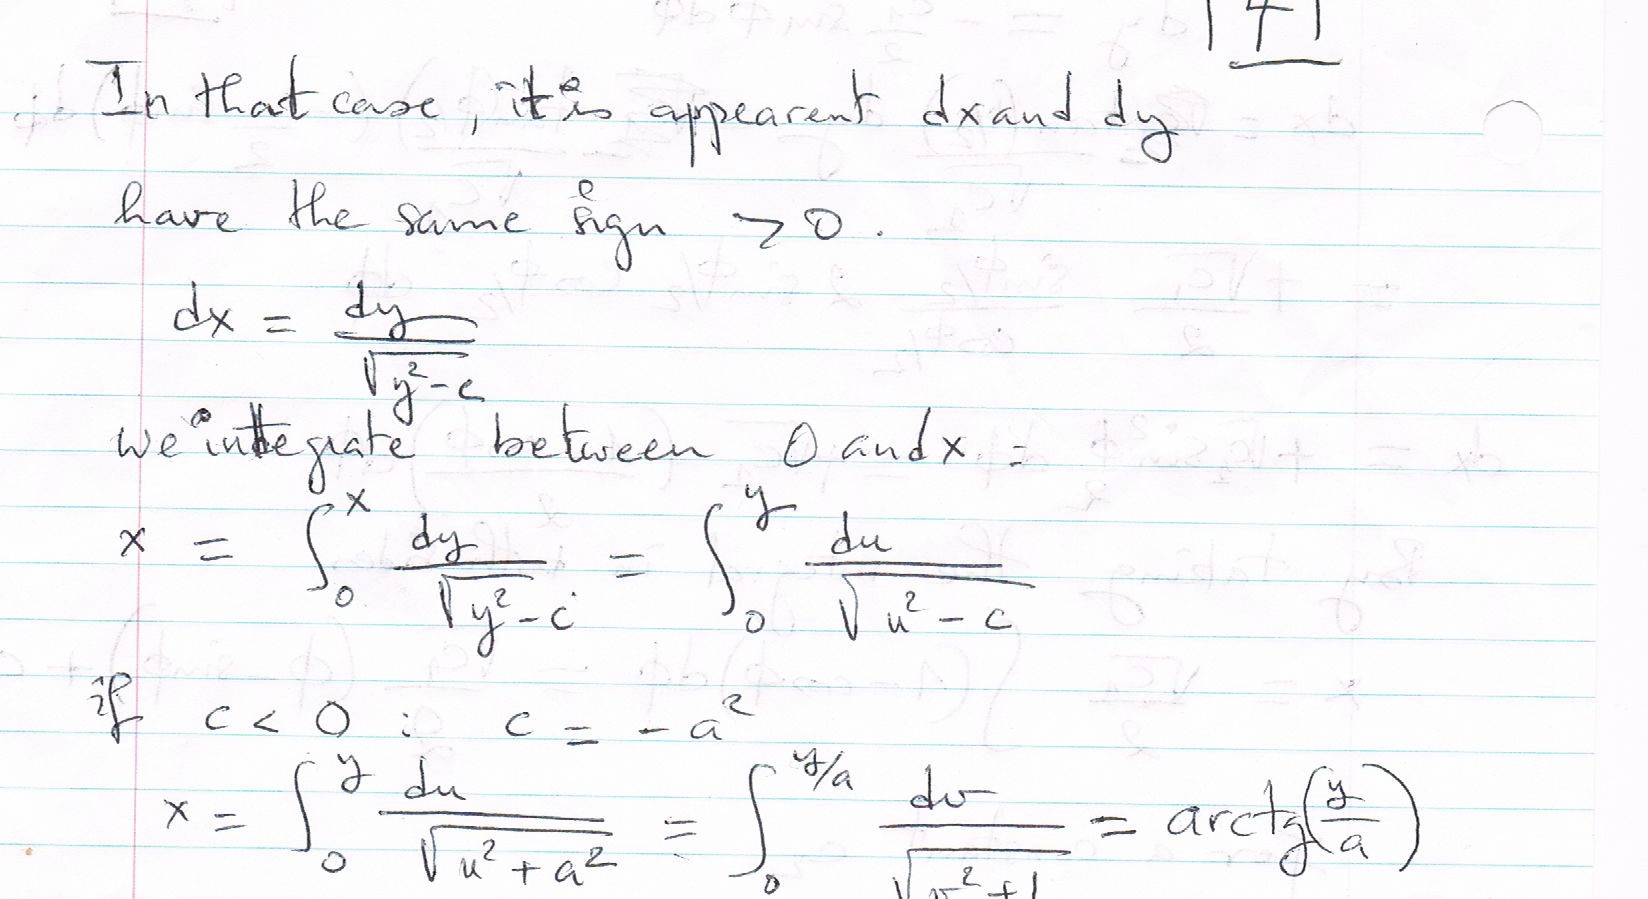 4
In that case, it is appearent dx and dy
have the same sign > 0.
dx = dy / √(y² - c)
we integrate between 0 and x :
x = ∫₀ˣ dy / √(y² - c) = ∫₀ʸ du / √(u² - c)
if c < 0 : c = - a²
x = ∫₀ʸ du / √(u² + a²) = ∫₀^(y/a) dv / √(v² + 1) = arctg(y/a)